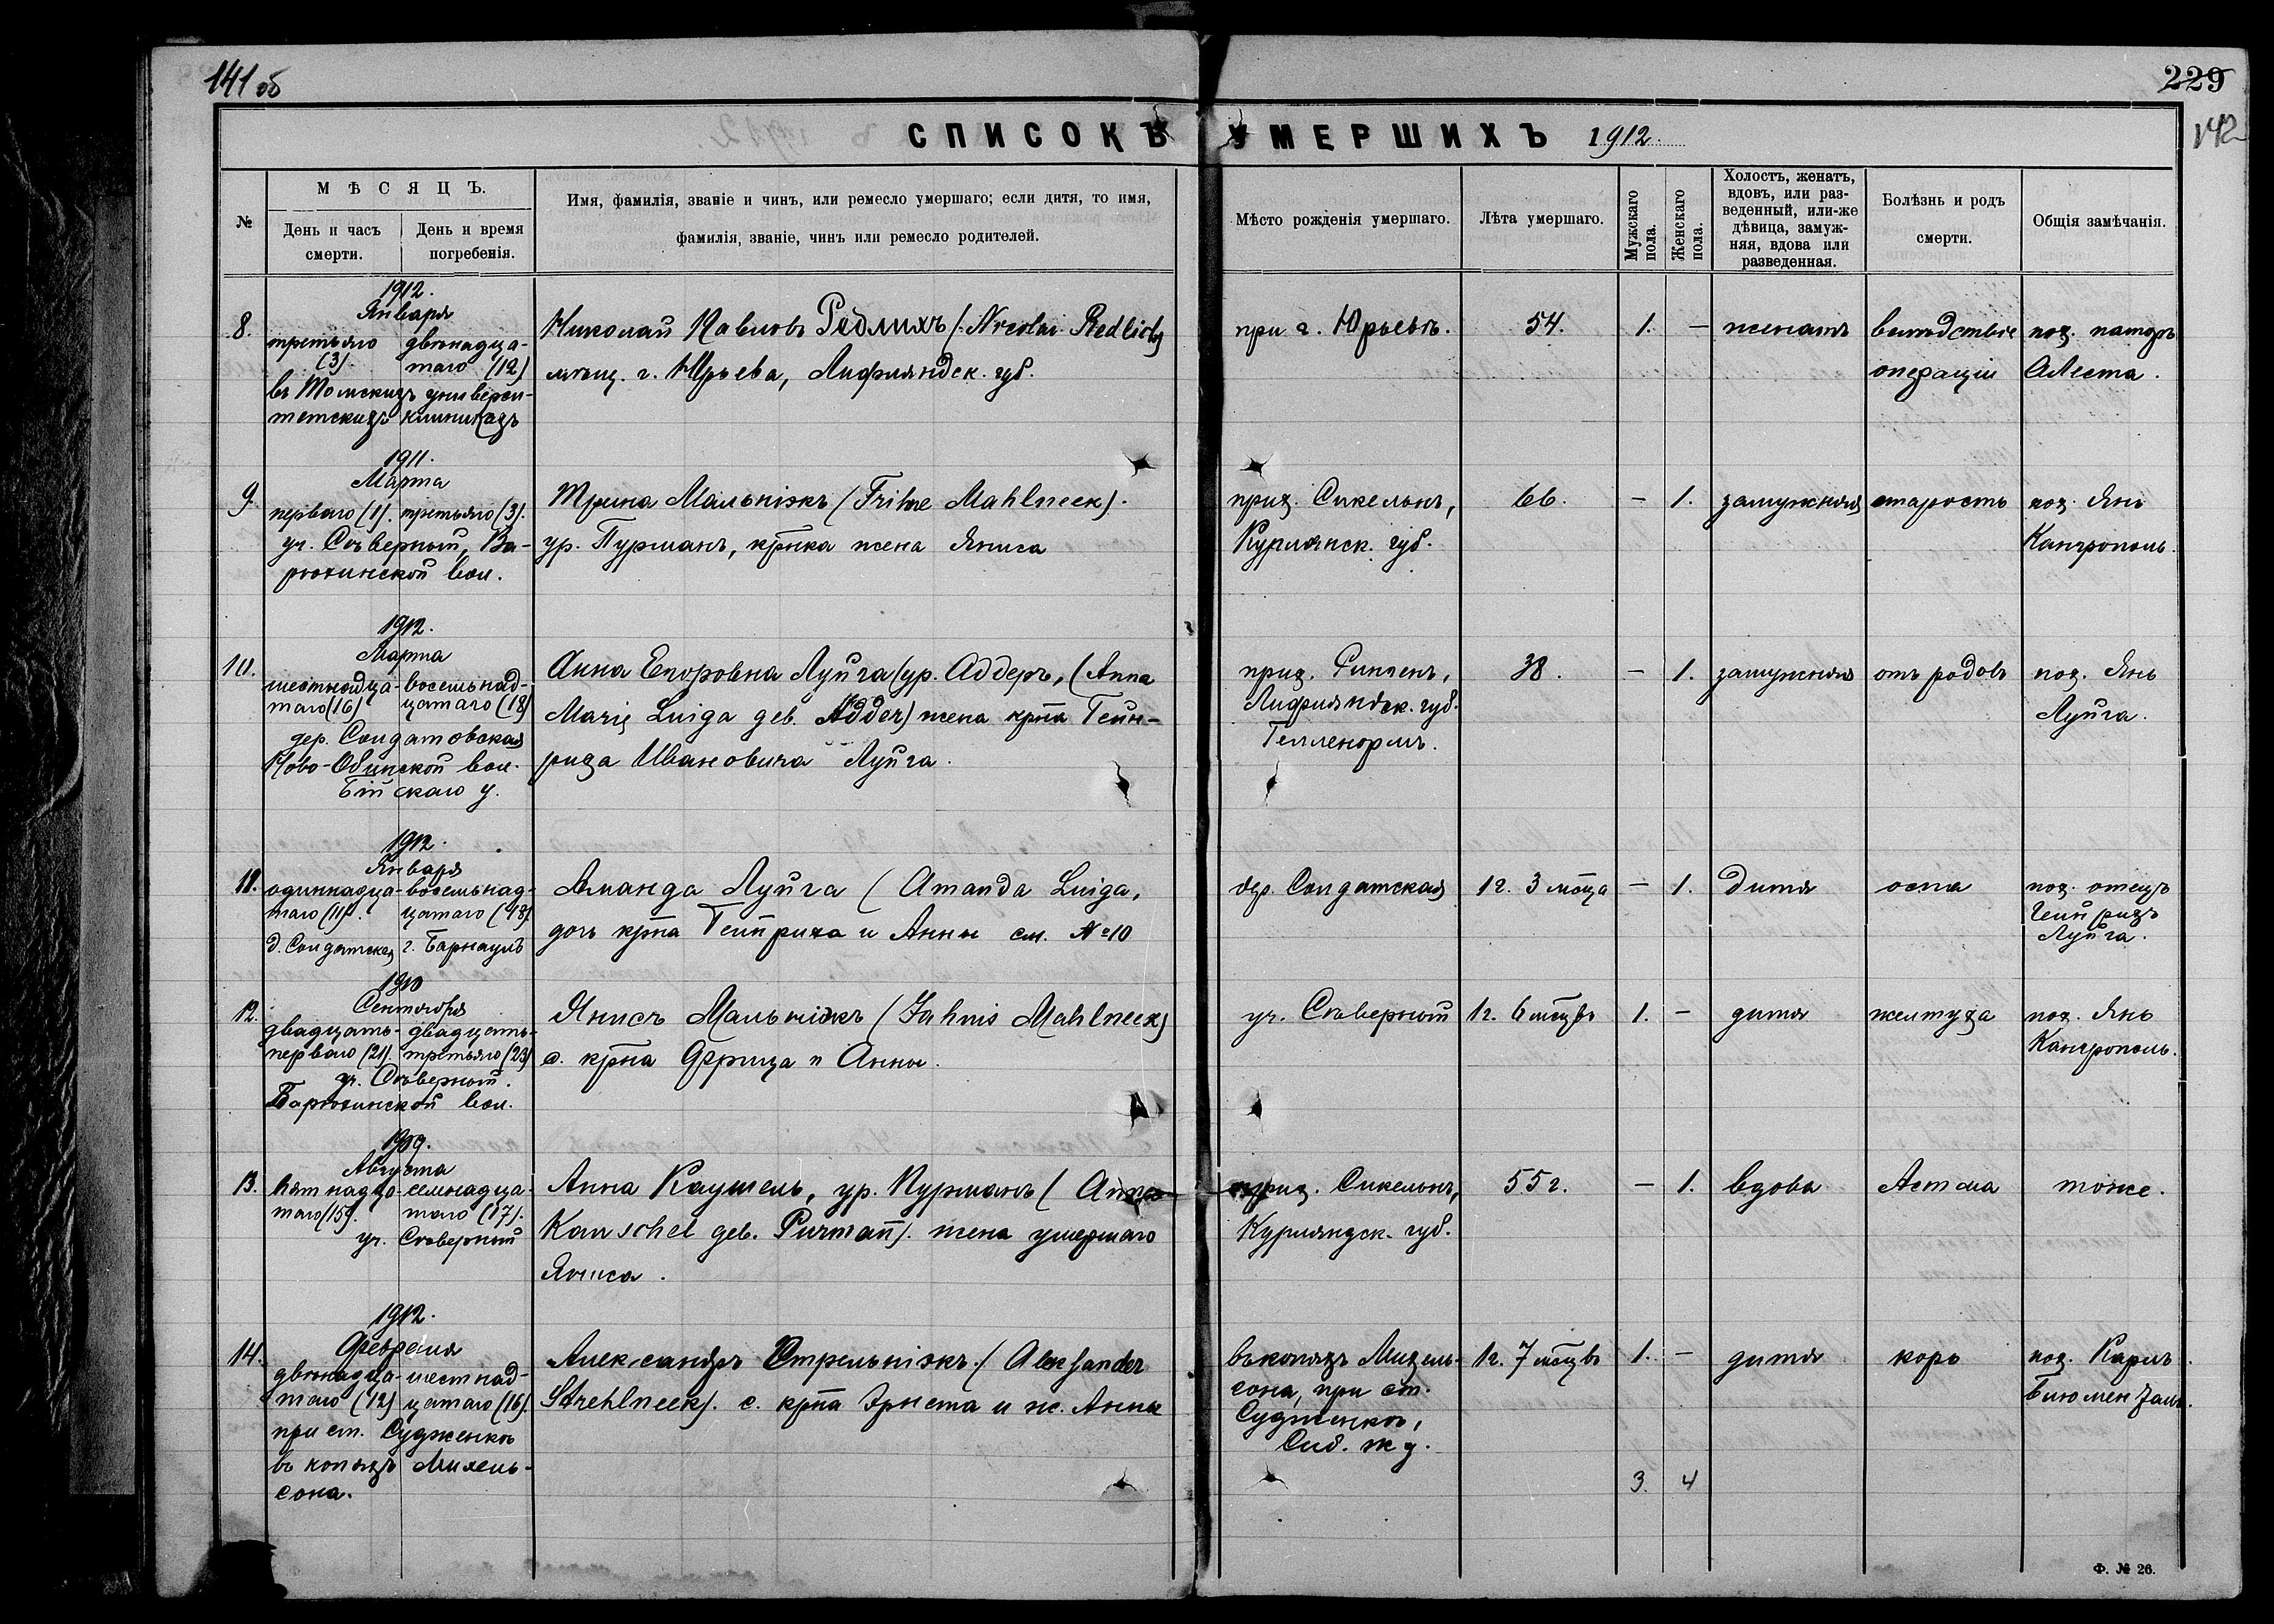 141 об
229
142
СПИСОКЪ УМЕРШИХЪ 1912.
№
МѢСЯЦЪ.
День и часъ смерти.
День и время погребенія.
Имя, фамилія, званіе и чинъ, или ремесло умершаго; если дитя, то имя,
фамилія, званіе, чинъ или ремесло родителей.
Мѣсто рожденія умершаго.
Лѣта умершаго.
Мужскаго пола.
Женскаго пола.
Холостъ, женатъ,
вдовъ, или раз-
веденный, или-же
дѣвица, замуж-
няя, вдова или
разведенная.
Болѣзнь и родъ
смерти.
Общія замѣчанія.
8.
1912.
Января
третьяго двѣнадца-
(3). таго (12)
въ Томскихъ универси-
тетскихъ клиникахъ
Николай Павловъ Редлихъ (Nicolai Redlich)
мѣщ. г. Юрьева, Лифляндск. губ.
при г. Юрьевѣ.
54.
1.
–
женатъ
вслѣдствіе
операціи
пох. пасторъ
Алеста.
9.
1911.
Марта
перваго (1). третьяго (3).
уч. Сѣверный, Ва-
рюхинской вол.
Трина Мальніэкъ (Trihne Mahlneek).
ур. Пурманъ, крнка жена Яниса
прих. Сикельнъ,
Курлянск. губ.
66.
–
1.
замужняя
старость
пох. Янъ
Кангрополь.
10.
1912.
Марта
шестнадца- восемьнад-
таго (16) цатаго (18)
дер. Солдатовская
Ново-Обинской вол.
Бійскаго у.
Анна Егоровна Луйга (ур. Аддеръ, (Anna
Marie Luiga geb. Adder) жена крна Гейн-
риха Ивановича Луйга.
прих. Рингенъ,
Лифляндск. губ.
Гелленормъ.
38.
–
1.
замужняя
отъ родовъ
пох. Янъ
Луйга.
11.
1912.
Января
одиннадца- восемьнад-
таго (11). цатаго (18)
д. Солдатская г. Барнаулъ
Аманда Луйга (Amanda Luiga,
дочь крна Гейнриха и Анны см. №10
дер. Солдатская
1 г. 3 мѣсца
–
1.
дитя
оспа
пох. отецъ
Гейнрихъ
Луйга.
12.
1910
Сентября
двадцать- двадцать-
перваго (21). третьяго (23)
уч. Сѣверный.
Варюхинской вол.
Янисъ Мальніэкъ (Jahnis Mahlneek)
с. крна Фрица и Анны.
уч. Сѣверный
1 г. 6 мѣсцвъ
1.
–
дитя
желтуха
пох. Янъ
Кангрополь.
13.
1909.
Августа
пятнадца- семнадца-
таго (15). таго (17).
уч. Сѣверный
Анна Каушель, ур. Пурманъ (Anna
Kauschel geb. Purmañ). жена умершаго
Яниса.
прих. Сикельнъ,
Курляндск. губ.
55 г.
–
1.
вдова
Астма
тоже.
14.
1912.
Февраля
двѣнадца- шестнад-
таго (12) цатаго (16).
при ст. Судженкѣ
въ копяхъ Михель-
сона.
Александръ Стрельніэкъ (Aleksander
Strehlneek). с. крна Эрнста и ж. Анны
въ копяхъ Михель-
сона, при ст.
Судженкѣ,
Сиб. ж д.
1 г. 7 мѣсцвъ
1.
–
дитя
корь
пох. Карлъ
Блюменталь.
3.
4
Ф. № 26.